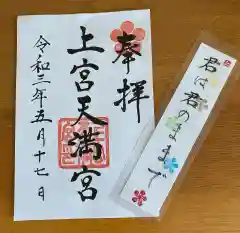 奉拝
上宮天満宮
令和三年五月十七日
君は君のままで